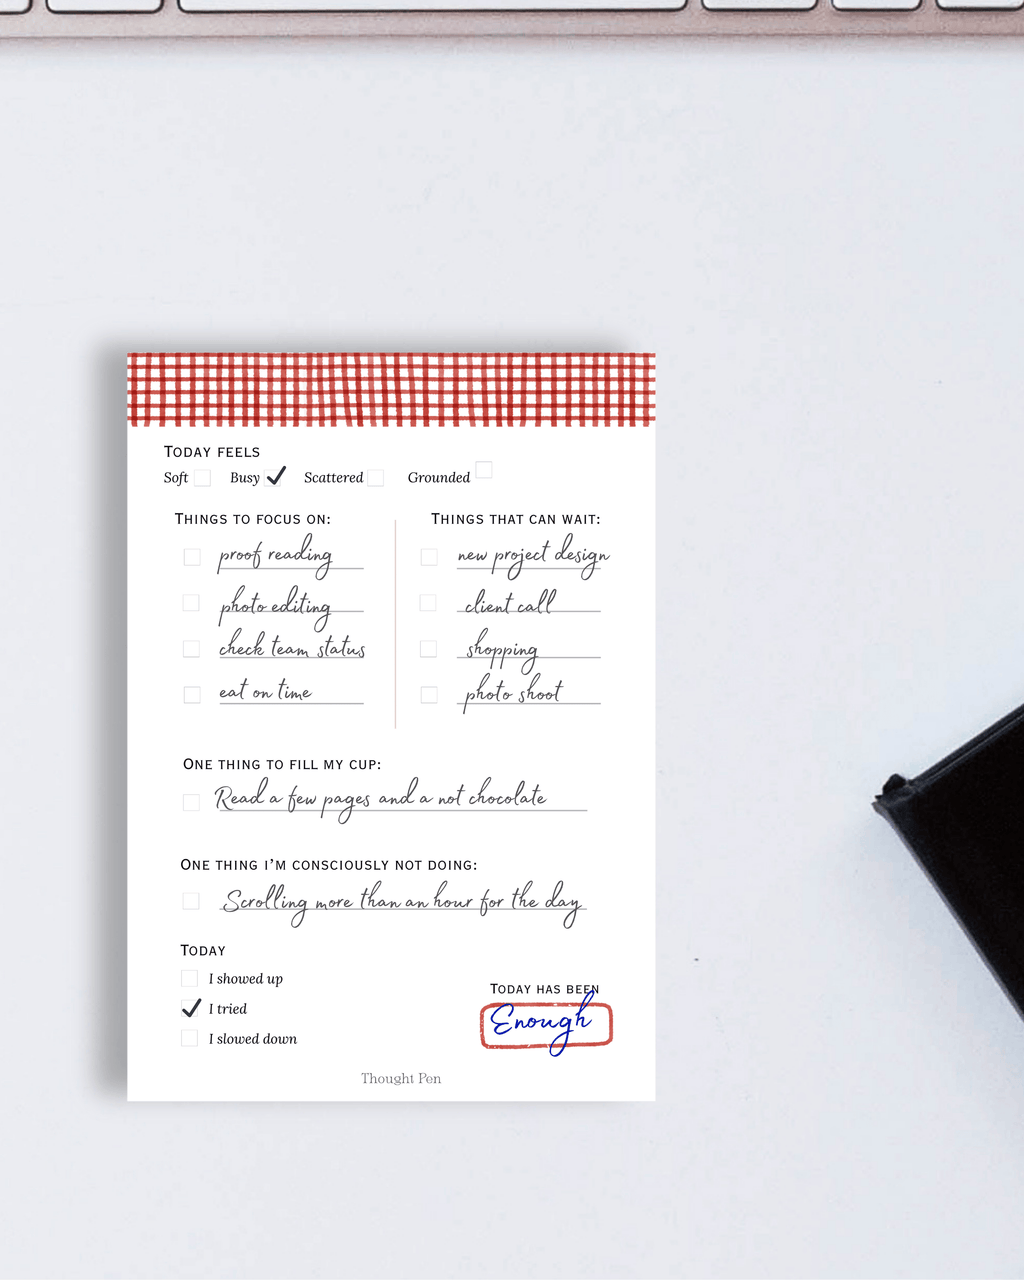 TODAY FEELS
Soft Busy Scattered Grounded
THINGS TO FOCUS ON:
proof reading
photo editing
check team status
eat on time
THINGS THAT CAN WAIT:
new project design
client call
shopping
photo shoot
ONE THING TO FILL MY CUP:
Read a few pages and a not chocolate
ONE THING I'M CONSCIOUSLY NOT DOING:
Scrolling more than an hour for the day
TODAY
I showed up
I tried
I slowed down
TODAY HAS BEEN
Enough
Thought Pen